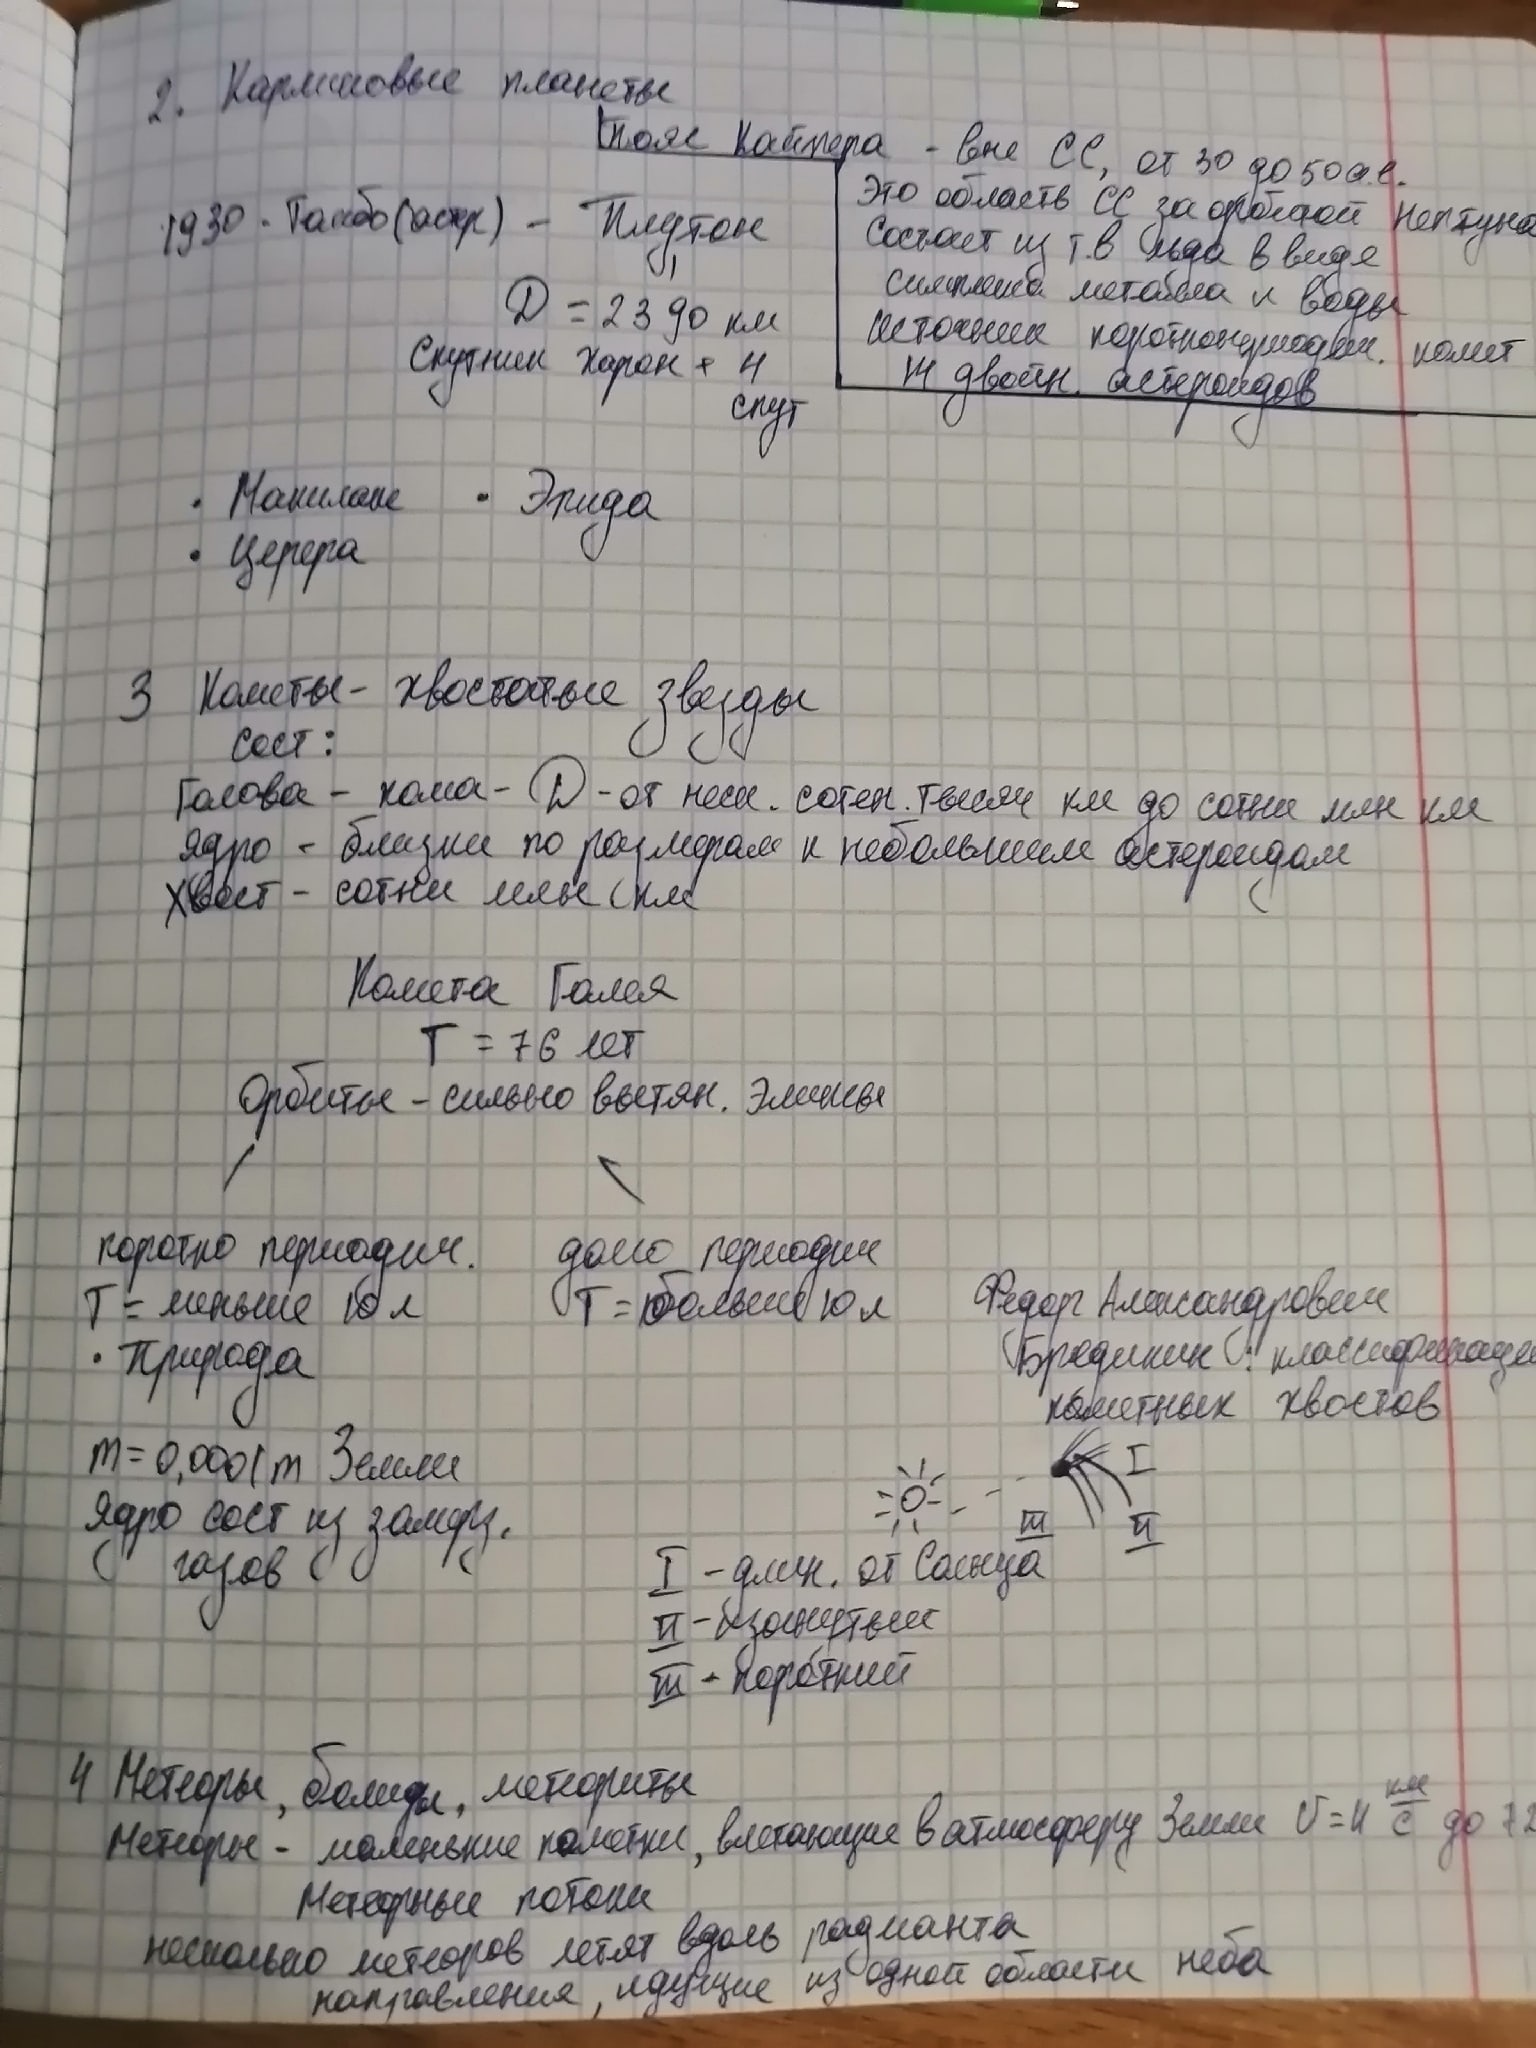 2. Карликовые планеты
Пояс Койпера - вне СС, от 30 до 50 а.е.
Это область СС за орбитой Нептуна
Состоит из т.в льда в виде
метана и воды
источник короткопериодич. комет
И двойн. астероидов
1930 - Томбо (астр) - Плутон
D = 2390 км
Спутник Харон + 4
спут
• Макимаке • Эрида
• Церера
3 Кометы - хвостатые звезды
сост:
Голова - кома - D - от неск. сотен. тысяч км до сотни млн км
Ядро - близки по размерам к небольшим астероидам
Хвост - сотни млн км
Комета Галея
T = 76 лет
Орбиты - сильно вытян. Элипсы
коротко периодич. долго периодич
T = меньше 10 л T = больше 10 л
• Природа
Федор Александрович
Бредихин: классификация
кометных хвостов
m = 0,0001 m Земли
Ядро сост из замерз.
газов
I
III II
I - длин. от Солнца
II - изогнутый
III - короткий
4 Метеоры, болиды, метеориты
Метеоры - маленькие кометки, влетающие в атмосферу Земли υ = 11 км/с до 72
Метеорные потоки
несколько метеоров летят вдоль радианта
направления, идущие из одной области неба